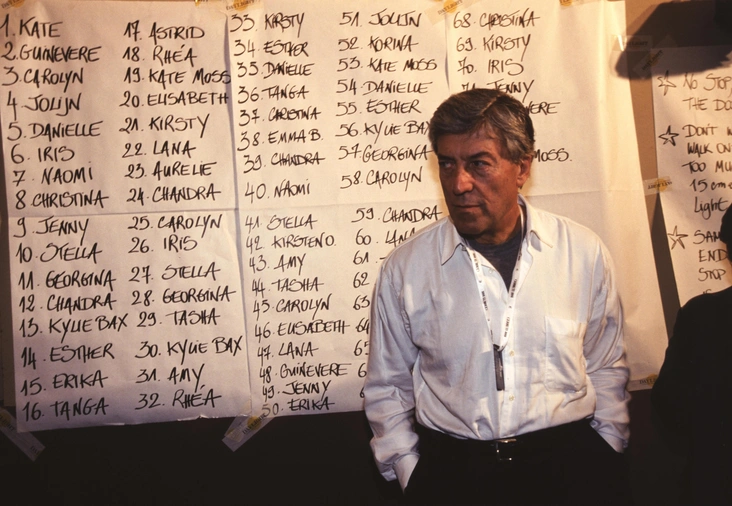 1. KATE
2. GUINEVERE
3. CAROLYN
4 JOLIJN
5. DANIELLE
6. IRIS
7 NAOMI
8 CHRISTINA
9 JENNY
10. STELLA
11. GEORGINA
12. CHANDRA
13. KYLIE BAX
14. ESTHER
15. ERIKA
16. TANGA
17. ASTRID
18. RHÉA
19. KATE MOSS
20. ELISABETH
21. KIRSTY
22. LANA
23. AURELIE
24. CHANDRA
25. CAROLYN
26. IRIS
27. STELLA
28. GEORGINA
29. TASHA
30. KYLIE BAX
31. AMY
32. RHÉA
33. KIRSTY
34. ESTHER
35. DANIELLE
36. TANGA
37. CHRISTINA
38. EMMA B.
39. CHANDRA
40. NAOMI
41. STELLA
42. KIRSTEN O.
43. AMY
44. TASHA
45. CAROLYN
46. ELISABETH
47. LANA
48 GUINEVERE
49. JENNY
50. ERIKA
51. JOLIJN
52. KORINA
53. KATE MOSS
54. DANIELLE
55. ESTHER
56. KYLIE BAX
57. GEORGINA
58. CAROLYN
59. CHANDRA
60. LANA
61.
62
63
64
68. CHRISTINA
69. KIRSTY
70. IRIS
JENNY
MOSS.
NO STOP
THE DO
DON'T
WALK ON
TOO MU
15 cm
Light
SAM
END
STOP